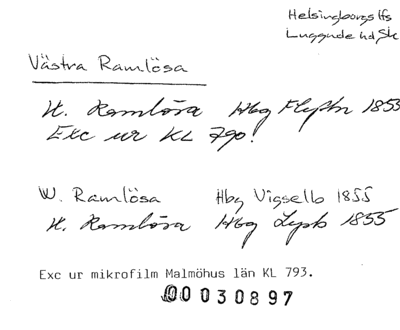 Helsingborgs lfs
Luggude hd Sk
Västra Ramlösa
W. Ramlösa Hbg Flyttn 1853
Exc ur KL 790!
W. Ramlösa Hbg Vigselb 1855
W. Ramlösa Hbg Lysb 1855
Exc ur mikrofilm Malmöhus län KL 793.
00030897